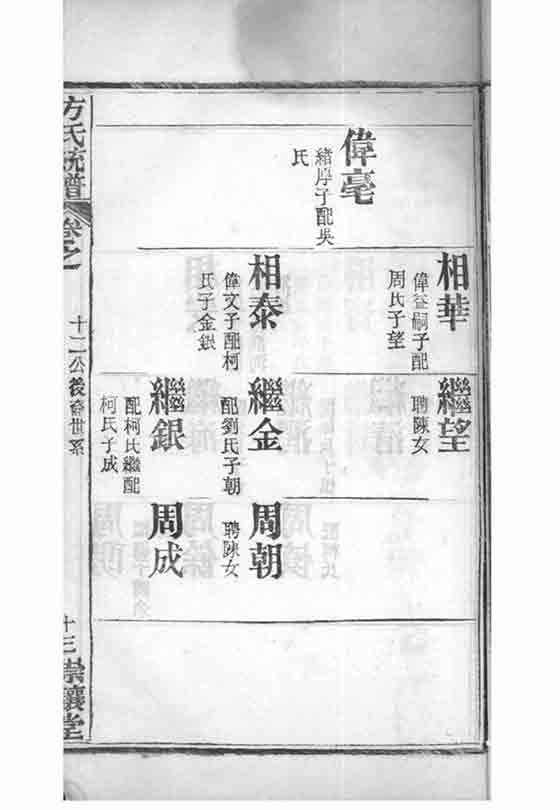 偉亳
緒厚子配吳
氏
相華
偉登嗣子配
周氏子望
相泰
偉文子配柯
氏子金銀
繼望
聘陳女
繼金
配劉氏子朝
繼銀
配柯氏繼配
柯氏子成
周朝
聘陳女
周成
方氏統譜
卷之
十二公後裔世系
十三
崇讓堂